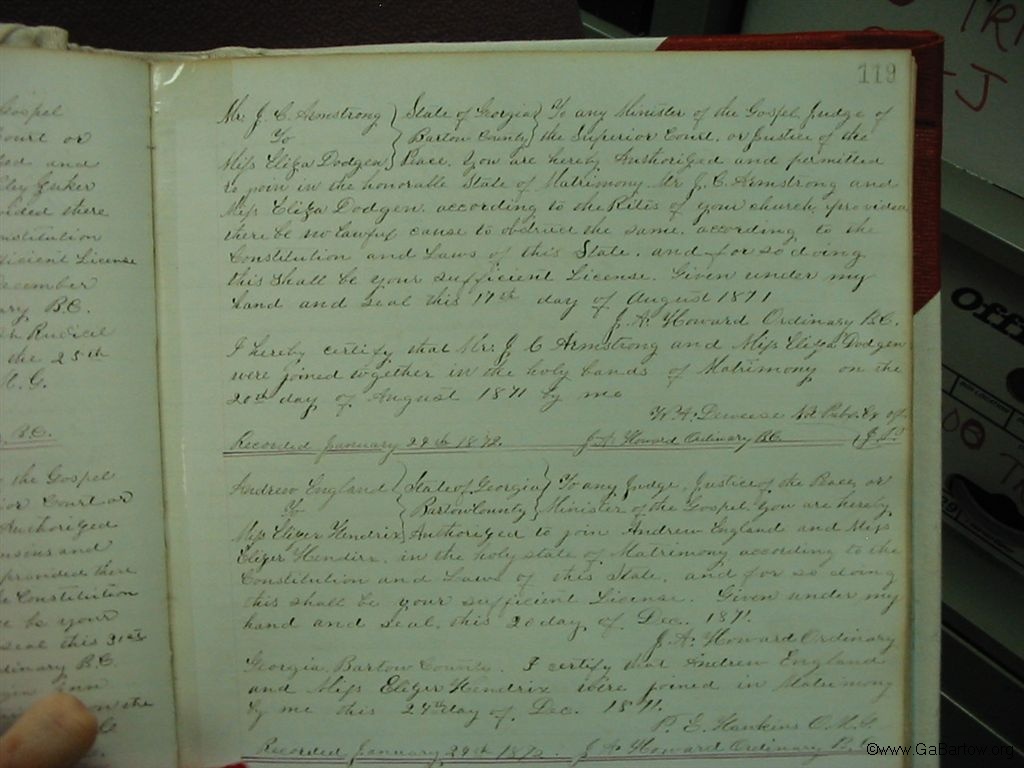 Gospel
Court or
and
Eley Guker
vided there
nstitution
ficient License
ecember
ary B.C.
the 25th
M.G.
B.C.
the Gospel
ior Court or
Authorized
and
provided there
e Constitution
be your
seal this 21st
dinary B.C.
on the
119
Mr. J. C. Armstrong } State of Georgia } To any Minister of the Gospel, Judge of
To } Bartow County } the Superior Court, or Justice of the
Miss Eliza Dodgen } Peace. You are hereby Authorized and permitted
to join in the honorable State of Matrimony Mr J. C. Armstrong and
Miss Eliza Dodgen. according to the Rites of your church, provided
there be no lawful cause to obstruct the same. according to the
Constitution and Laws of this State, and for so doing
this shall be your sufficient License. Given under my
hand and seal this 17th day of August 1871
J. A. Howard Ordinary B.C.
I hereby certify that Mr. J. C Armstrong and Miss Eliza Dodgen
were joined together in the holy bands of Matrimony on the
20th day of August 1871 by me
W. A. Deweese Not Pub. Ex of
J.P.
Recorded January 29th 1872. J. A. Howard Ordinary B.C.
Andrew England } State of Georgia } To any Judge, Justice of the Peace, or
To } Bartow County } Minister of the Gospel. You are hereby
Miss Eliger Hendrix } Authorized to join Andrew England and Miss
Eliger Hendirx, in the holy state of Matrimony according to the
Constitution and Laws of this State, and for so doing
this shall be your sufficient License. Given under my
hand and seal, this 20 day of Dec. 1871.
J. A. Howard Ordinary
Georgia, Bartow County. I certify that Andrew England
and Miss Eliger Hendrix were joined in Matrimony
by me this 24th day of Dec. 1871.
P. E. Hankins O.M.G.
Recorded January 29th 1872. J A Howard Ordinary B.C.
TRI
J
offi
©www.GaBartow.org